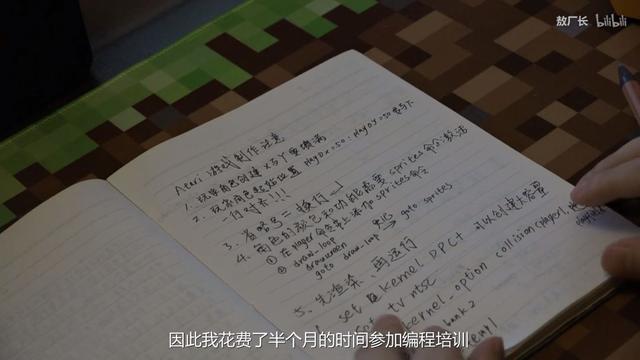 敖厂长 bilibili
Atari 游戏制作注意
1. 玩家角色创建 x 与 y 要填满
2. 玩家角色起始位置 player0x=50:player0y=50 要写下
行对齐!!!
3. 冒号 = 换行
4. 角色的颜色和功能需要 sprites 命令激活
① 在 player 命令带上添加 sprites 命令
② draw_loop
drawscreen
goto draw_loop
goto sprites
5. 先渲染、再运行
set kernel DPC+ 可以创建大容量
set tv ntsc
kernel_option collision(player1,
bank 2
因此我花费了半个月的时间参加编程培训